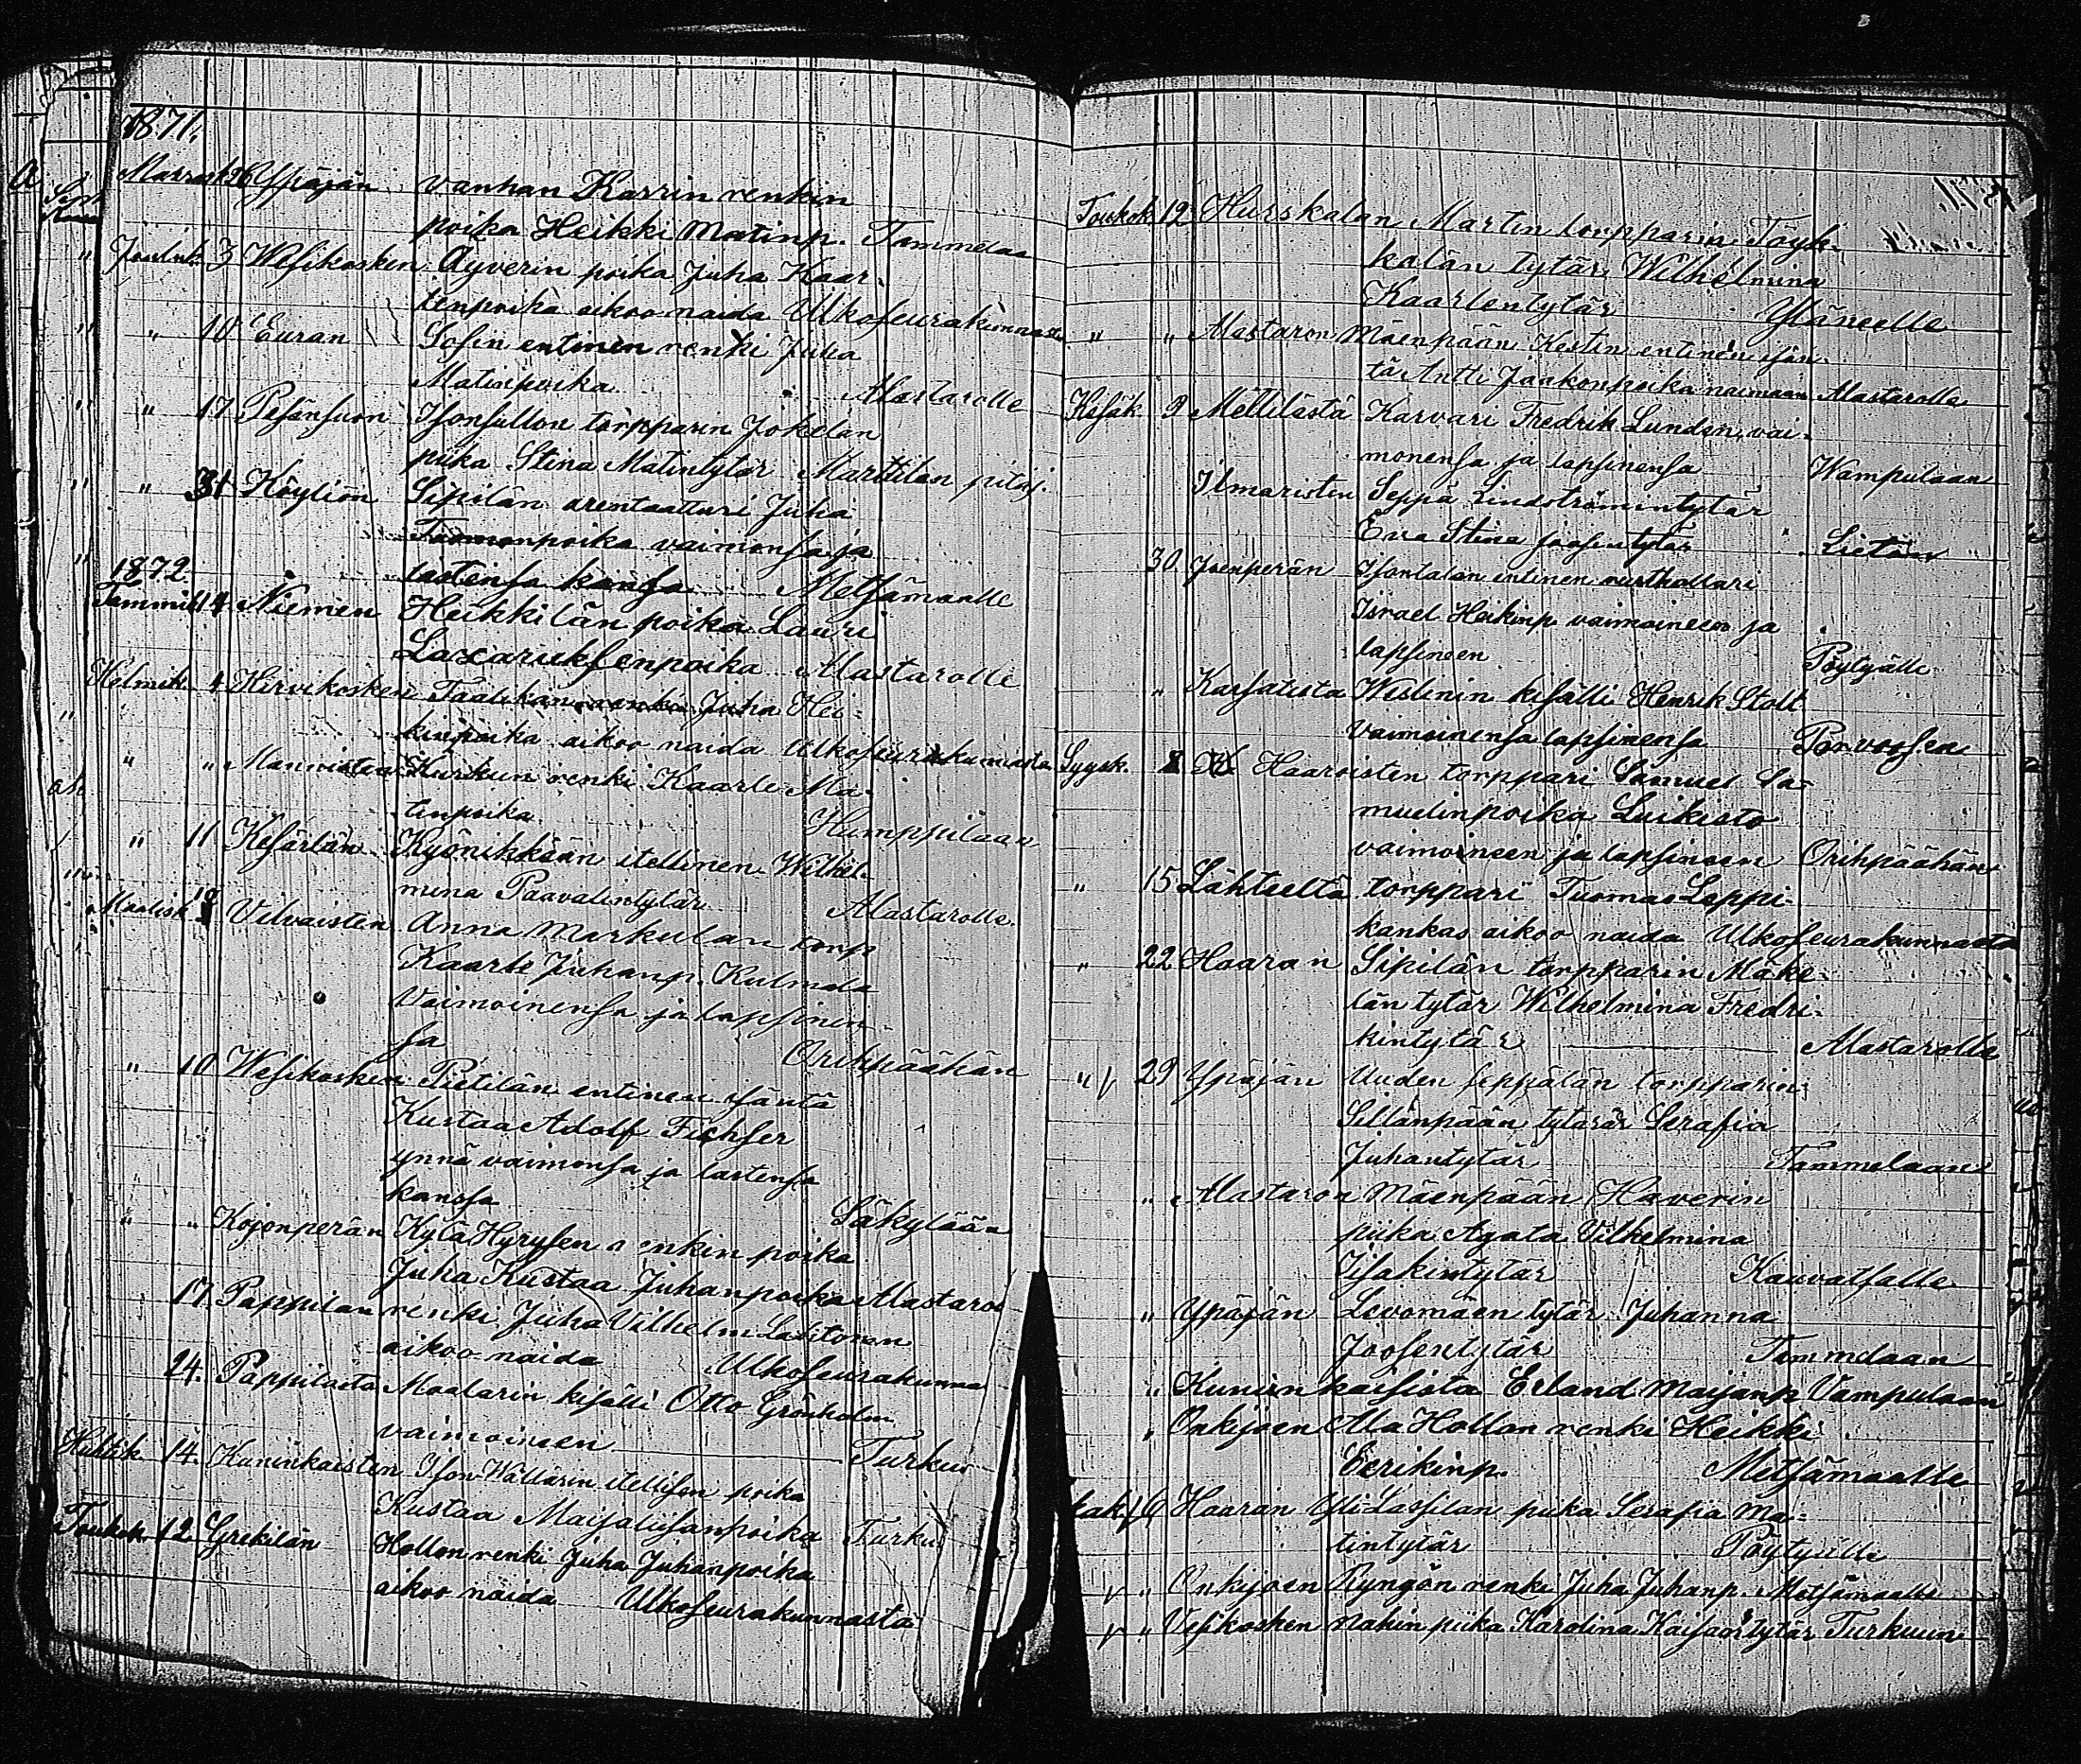 1871.
Marrask. 26 Ypäjän vanhan Karrin renkin
poika Heikki Matinp. Tammelaa
Jouluk. 3 Wesikosken Äyverin poika Juha Kaar-
lenpoika aikoo naida Ulkoseurakunnasta
" 10 Euran Sosin entinen renki Juha
Matinpoika Alastarolle
" 17 Pesänsuon Isonsullon torpparin Jokelan
piika Stina Matintytär Marttilan pitäj.
" 31 Köyliön Sipilän arentaatturi Juha
Tuomonpoika vaimonsa ja
lastensa kansa Metsämaalle
1872
Tammik. 14 Niemen Heikkilän poika Lauri
Laxariuksenpoika Alastarolle
Helmik. 4 Hirvikosken Taatikan renki Juha Hei-
kinpoika aikoo naida Ulkoseurakunnasta
" " Mannisten Kurkun renki Kaarle Ma-
tinpoika Humppilaan
" 11 Kesärlän Kyönikkään itellinen Wilhel-
mina Paavalintytär Alastarolle.
Maalisk. Vilvaisten Anna Markulan torp
Kaarle Juhanp. Kulmala
Vaimoinensa ja lapsinen-
sa Orihpäähän
" 10 Wesikosken Pietilän entinen isäntä
Kustaa Adolf Fichser
ynnä vaimonsa ja lastensa
kanssa Säkylään
" " Kojonperän Kylä Hyrysen renkin poika
Juha Kustaa Juhanpoika Alastaroo
17 Pappilan renki Juha Vilhelm
aikoo naida Ulkoseurakunna
24. Pappilasta Maalarin kisälli Otto Grönholm
vaimoineen Turkuu
Huhtik 14. Kuninkaisten Ison Wällärin itellisen poika
Kustaa Maijaliisanpoika Turku
Toukok. 12 Grekilän Hollon renki Juha Juhanpoika
aikoo naida Ulkoseurakunnasta
1871.
Toukok. 12 Hurskalan Martin torpparin Töyk-
kälän tytär Wilhelmina
Kaarlentytär Yläneelle
" " Alastaron Mäenpään Kestin entinen isän-
tä Antti Jaakonpoika naimaan Alastarolle
Kesäk. 9 Mellilästä Karvari Fredrik Lunden, vai-
monensa ja lapsinensa Wampulaan
Ilmaristen Seppä Lindströmintytär
Eva Stina Joosentytär Lietoon
30. Joenperän Isontalon entinen rusthollari
Israel Heikinp. vaimoineen ja
lapsineen Pöytyälle
" Karsatista Weslenin kisälli Henrik Stolt
Vaimoinensa lapsinensa Porvoosen
Syysk. Haaroisten torppari Samuel Sa-
muelinpoika Luikisto
vaimoineen ja lapsineen Orihpäähän
" 15 Lähteeltä torppari Tuomas Leppi-
kankas aikoo naida Ulkoseurakunnasta
" 22 Haaran Sipilän torpparin Mäke-
län tytär Wilhelmina Fredri-
kintytär Alastarolle
" 29 Ypäjän Uuden seppälän torpparin
Sillänpään tytärär Serafia
Juhantytär Tammelaan
" Alastaron Mäenpään Haverin
piika Agata Vilhelmina
Iisakintytär Kauvatsalle
" Ypäjän Levomäen tytär Juhanna
Joosentytär Tammelaan
" Kuninkaisista Erland Maijanp. Vampulaan
" Onkijoen Ala Hollon renki Heikki
Eerikinp. Metsämaalle
6 Haaran Yli-Lassilan piika Serafia Ma-
tintytär Pöytyälle
" Onkijoen Ryngön renki Juha Juhanp. Metsämaalle
" Vesikosken Nahin piika Karolina Kaisantytär Turkuun